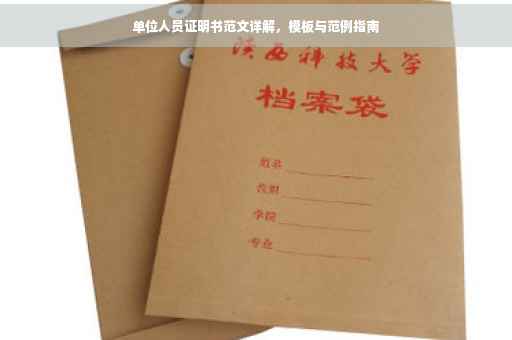 单位人员证明书范文详解，模板与范例指南
陕西科技大学
档案袋
学院
专业